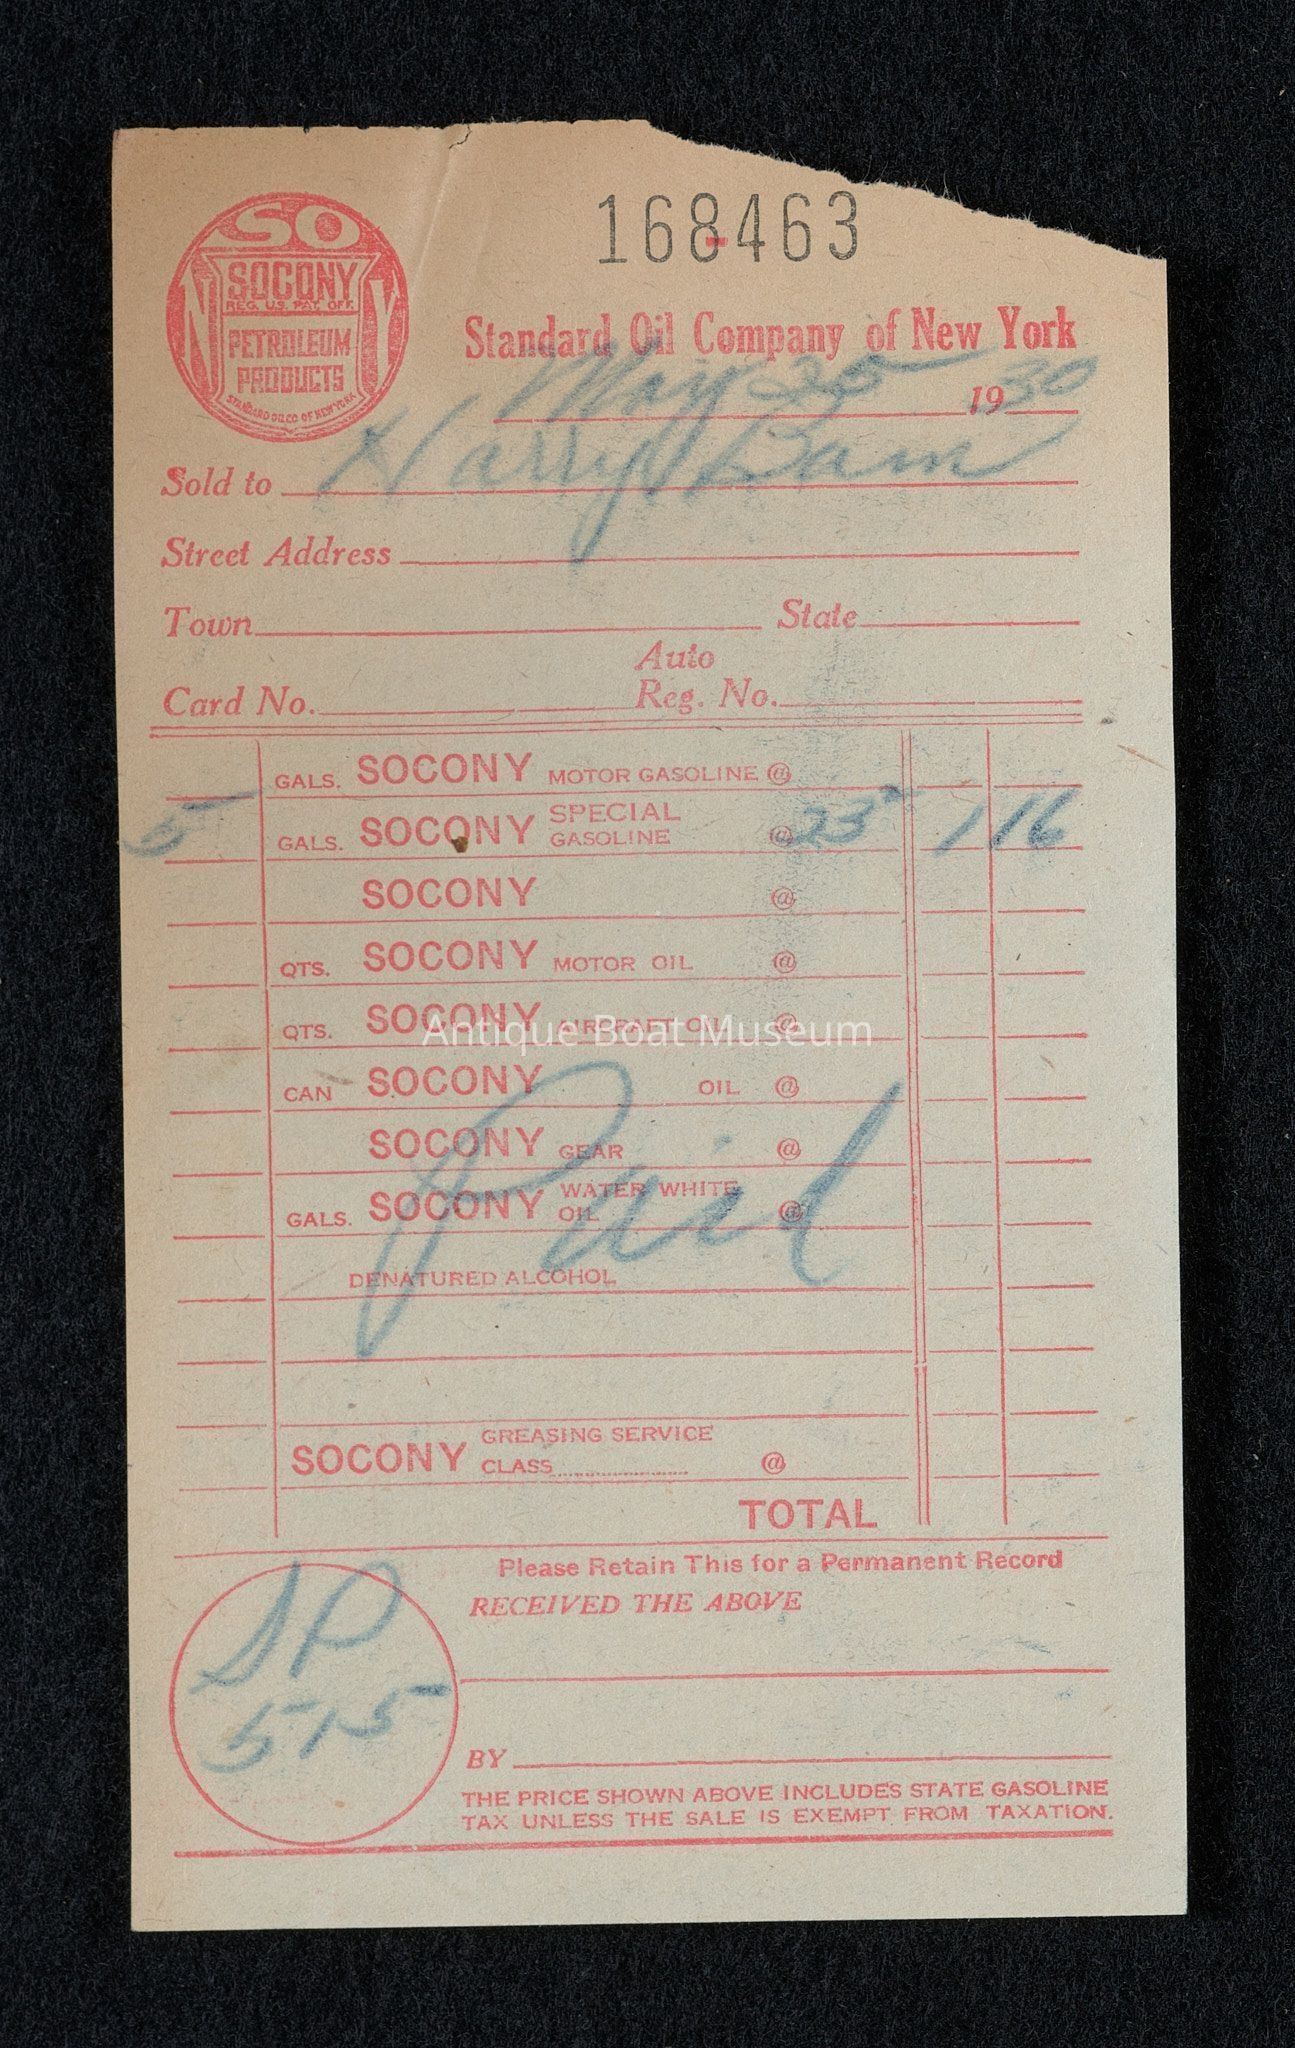 168-463
SO
N SOCONY Y
REG. U.S. PAT. OFF.
PETROLEUM
PRODUCTS
STANDARD OIL CO. OF NEW YORK
Standard Oil Company of New York
May 25 1930
Sold to Harry Bam
Street Address
Town State
Auto
Card No. Reg. No.
GALS. SOCONY MOTOR GASOLINE @
5 GALS. SOCONY SPECIAL GASOLINE @ 23 1 16
SOCONY @
QTS. SOCONY MOTOR OIL @
QTS. SOCONY AIRCRAFT OIL @
Antique Boat Museum
CAN SOCONY OIL @
SOCONY GEAR @
GALS. SOCONY WATER WHITE OIL @
Paid
DENATURED ALCOHOL
SOCONY GREASING SERVICE CLASS @
TOTAL
Please Retain This for a Permanent Record
RECEIVED THE ABOVE
SP
515
BY
THE PRICE SHOWN ABOVE INCLUDES STATE GASOLINE
TAX UNLESS THE SALE IS EXEMPT FROM TAXATION.